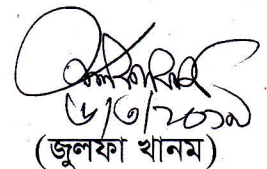 ৬/৩/২০১৯
(জুলফা খানম)